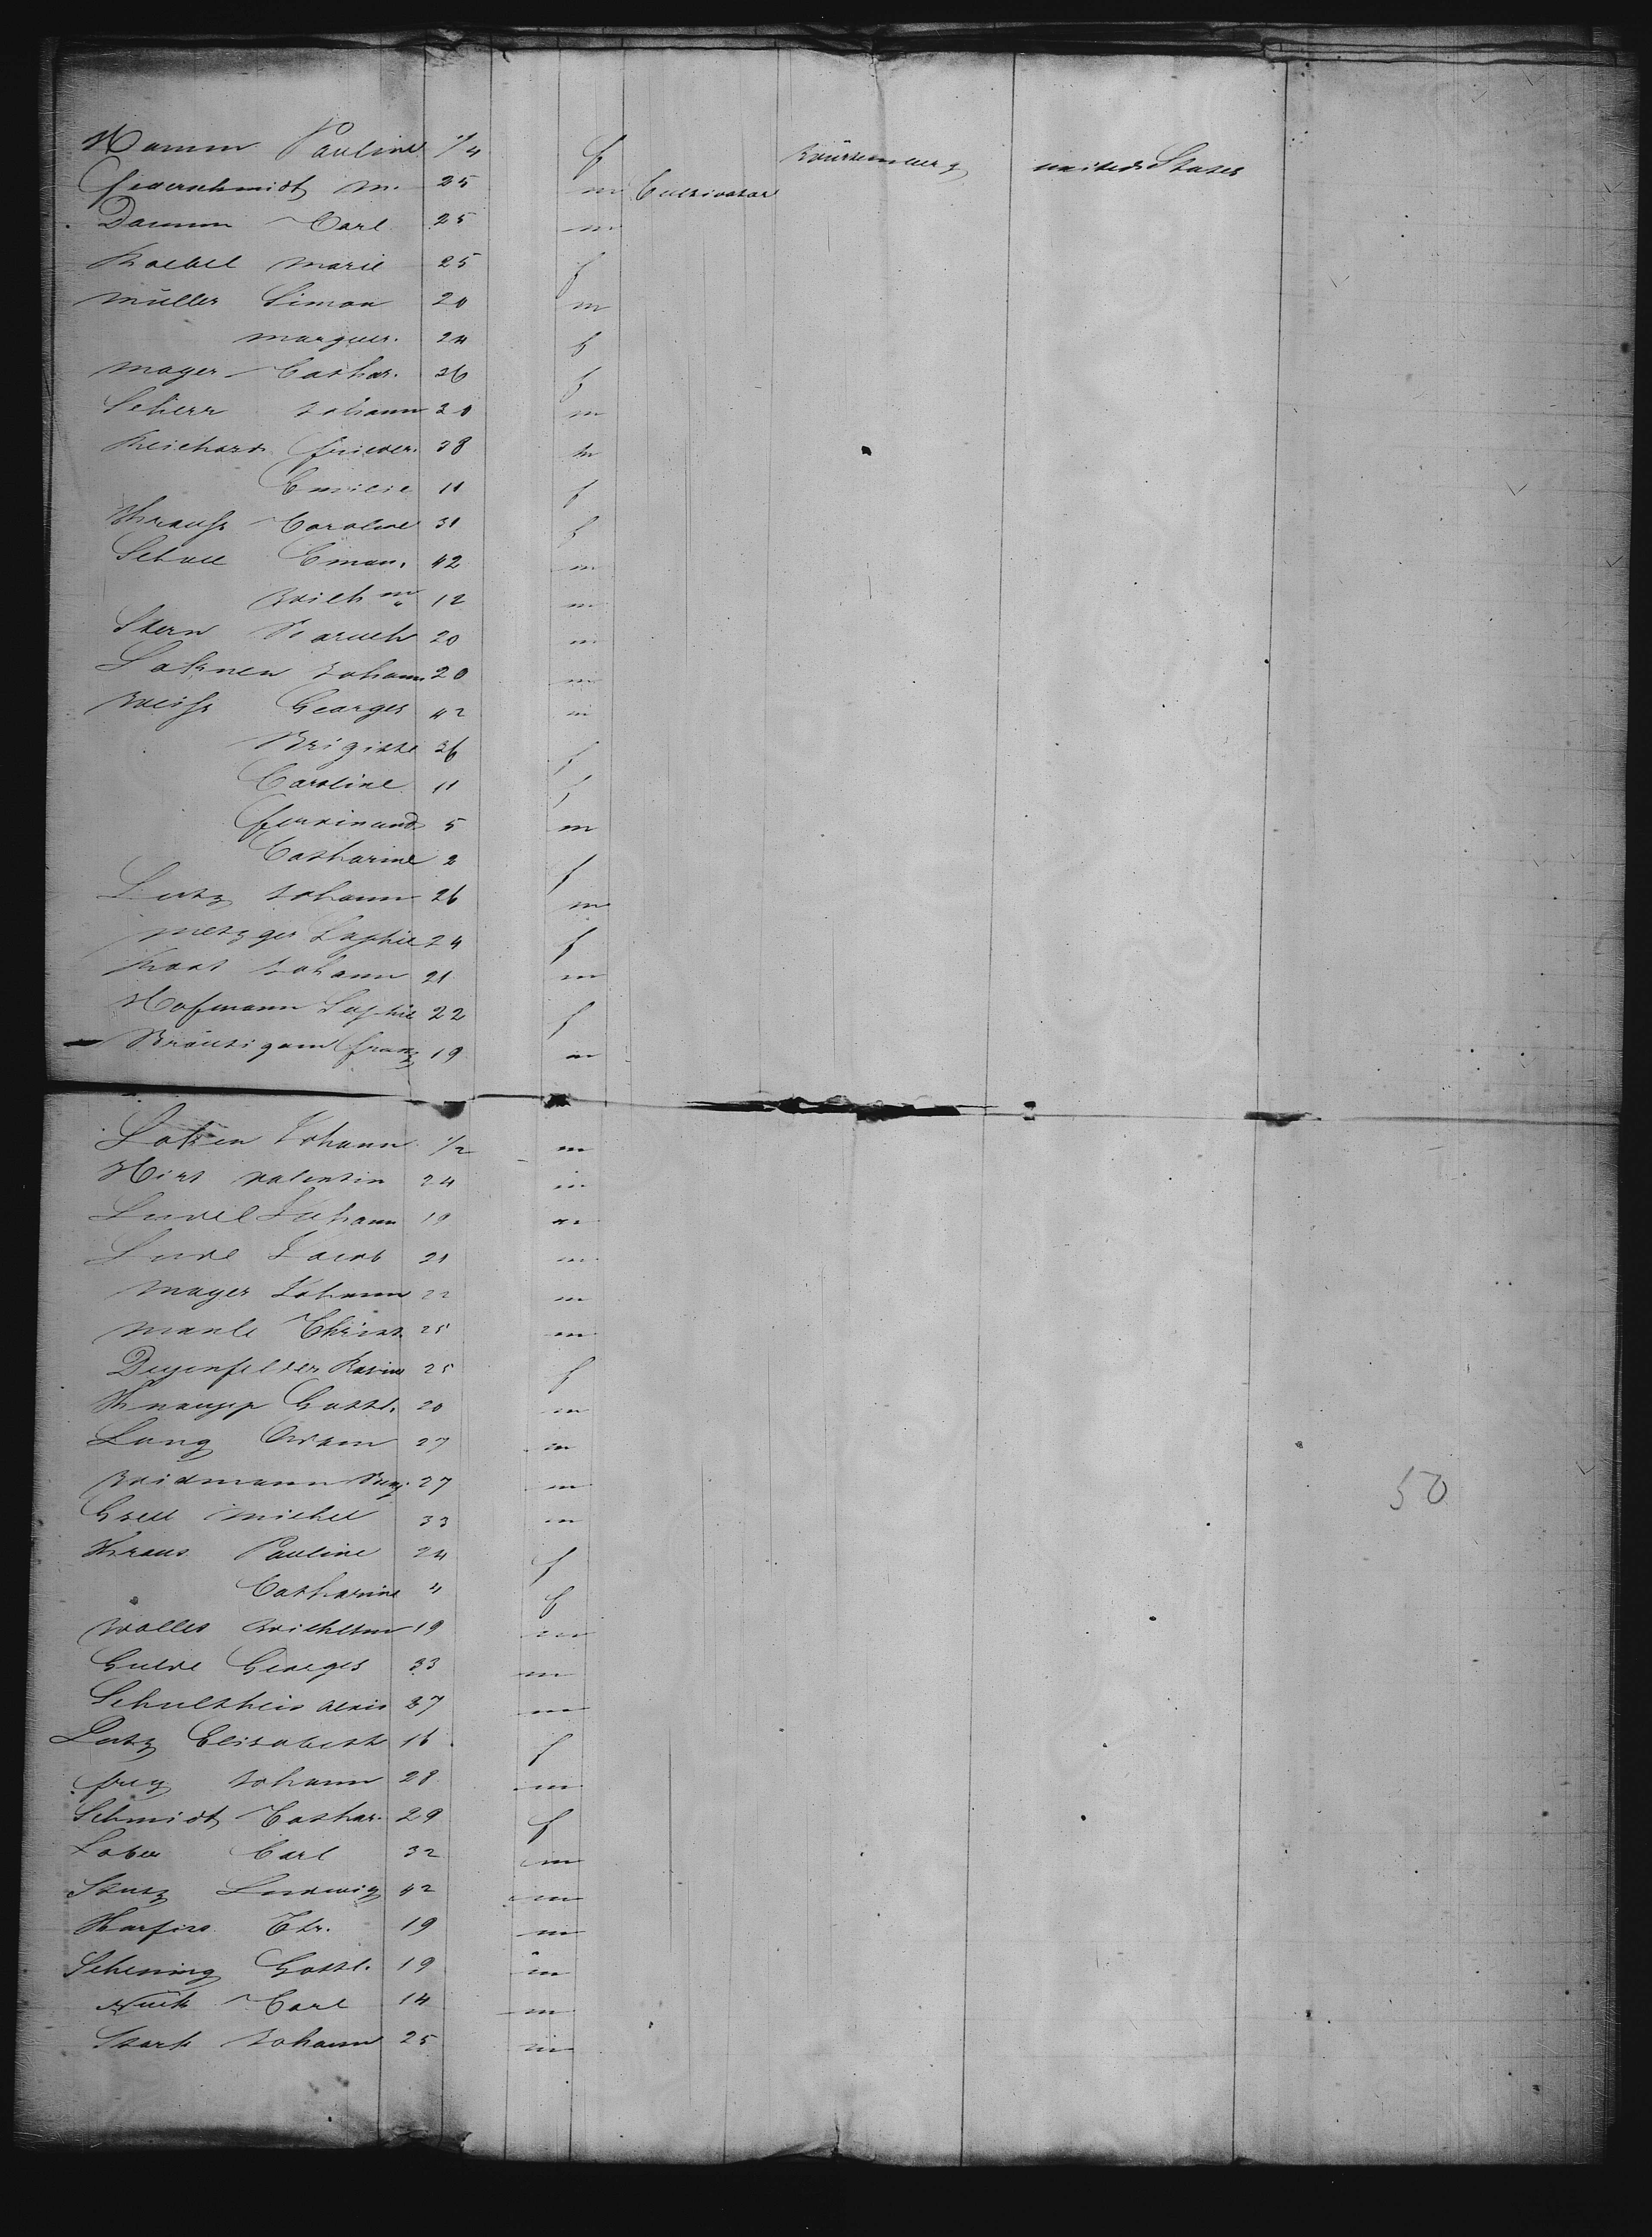 Hamm Pauline 1/4 f Württemberg united States
Federschmidt M. 25 m Cultivator
Damm Carl 25 m
Koebel Marie 25 f
Müller Simon 20 m
Marguer. 24 f
Mayer Cathar. 26 f
Scherr Johann 20 m
Reichard Frieder. 38 m
Emilie 11 f
Krauss Caroline 31 f
Schall Eman. 42 m
Wilhm 12 m
Stern Baruch 20 m
Johann 20 m
Weiss Georges 42 m
Brigitte 36 f
Caroline 11 f
Ferdinand 5 m
Catharine 2 f
Lutz Johann 26 m
Metzger Sophie 24 f
Johann 21 m
Hofmann Sophie 22 f
Bräutigam Franz 19 m
Johann 1/2 m
Hirt Valentin 24 m
Johann 19 m
Jacob 21 m
Mayer Johann 22 m
Christ. 25 m
Degenfelder Rosine 25 f
Knaupp Gottl. 20 m
Lang Adam 27 m
Widmann 27 m
Gsell Michel 33 m
50
Kraus Pauline 24 f
Catharine 4 f
Wilhelm 19 m
Gulde Georges 33 m
Schultheis Alois 27 m
Lutz Elisabeth 16 f
Frey Johann 28 m
Schmidt Cathar. 29 f
Carl 32 m
Stutz Ludwig 42 m
Chr. 19 m
Gottl. 19 m
Carl 14 m
Stark Johann 25 m